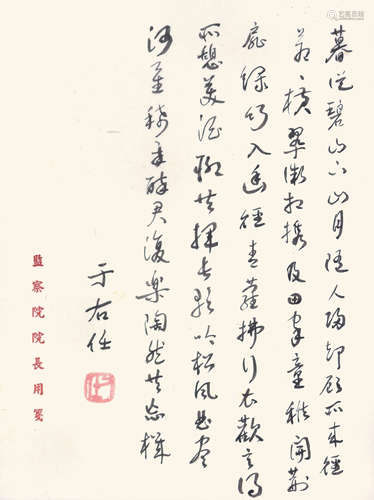 暮從碧山下山月隨人歸却顧所來徑
蒼々橫翠微相攜及田家童稚開荊
扉綠竹入幽徑青蘿拂行衣歡言得
所憩美酒聊共揮長歌吟松風曲盡
河星稀我醉君復樂陶然共忘機
于右任
監察院院長用箋